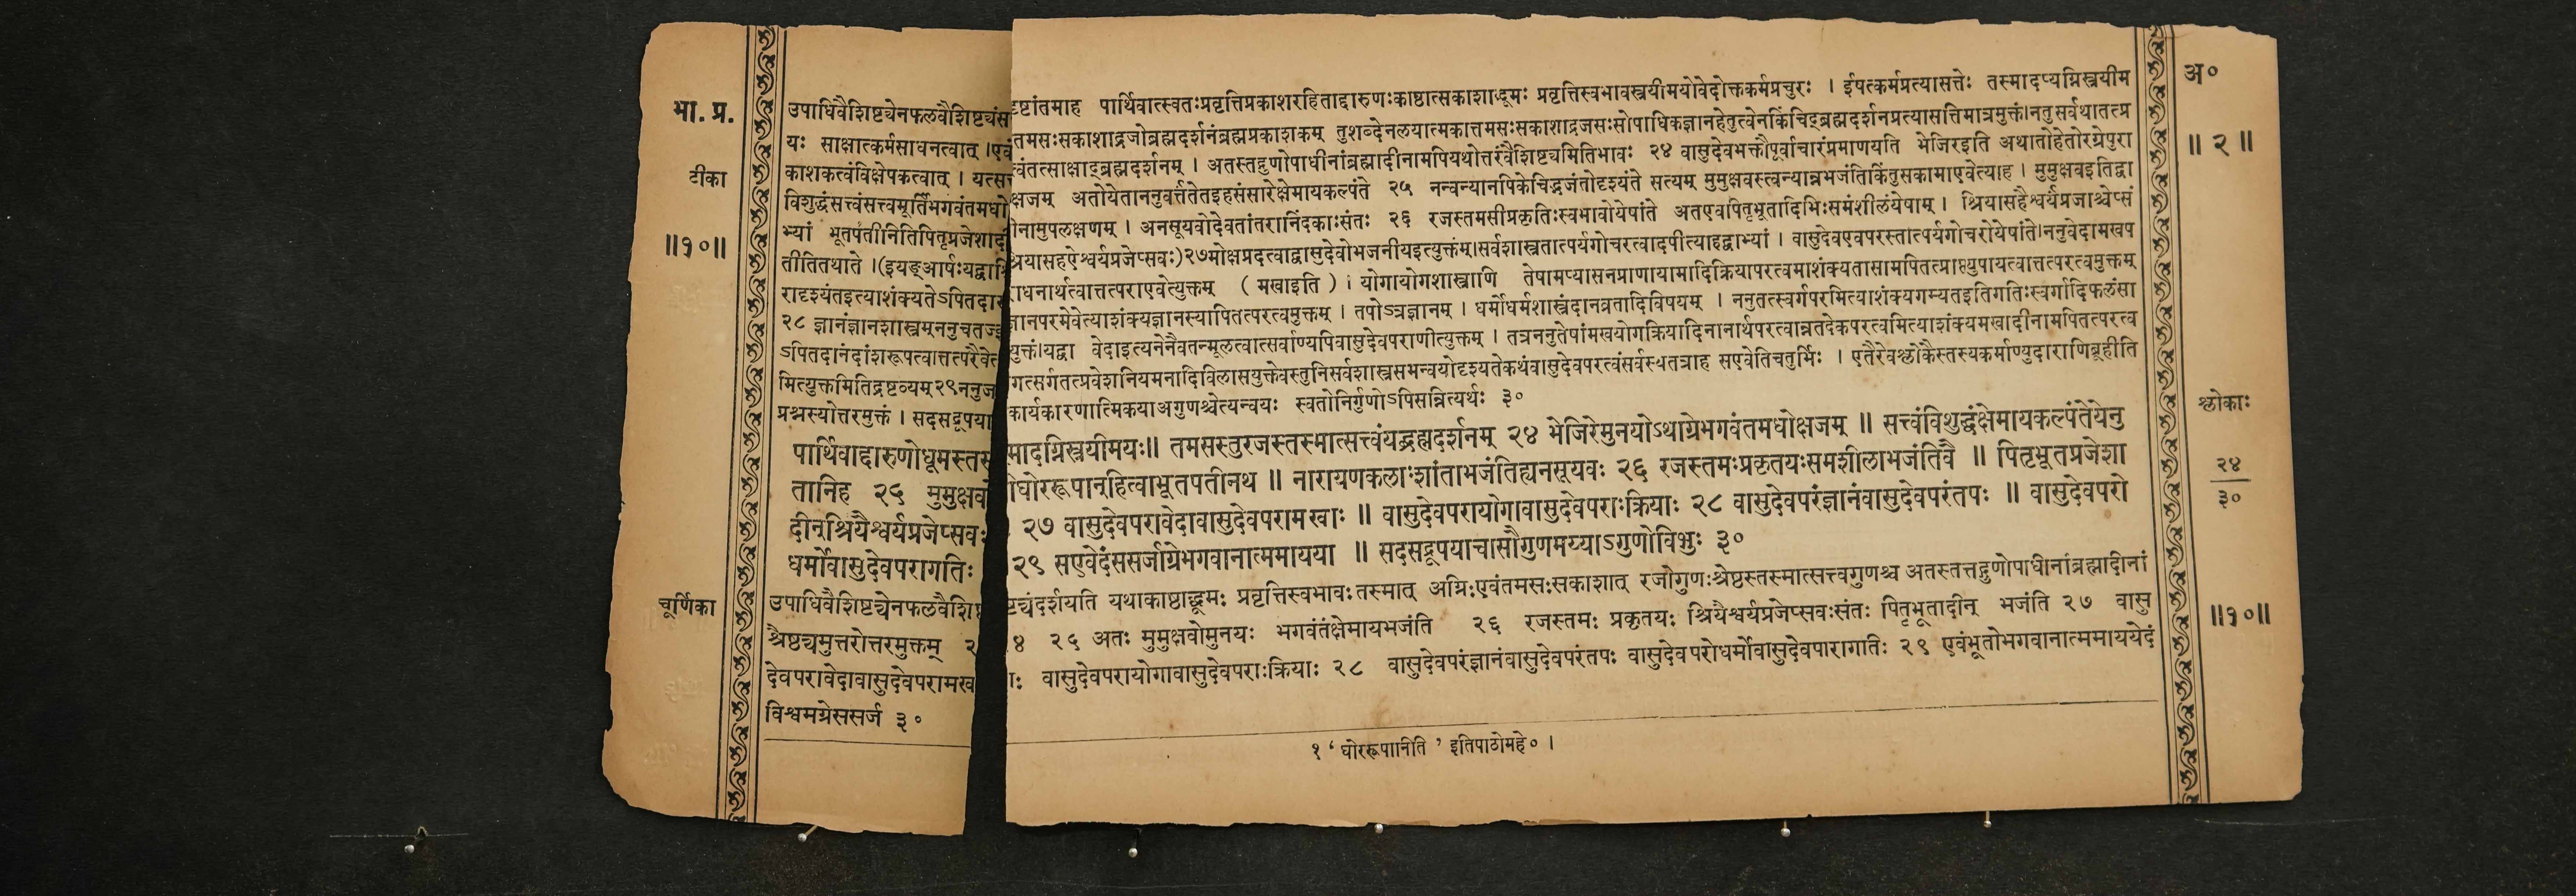 भा. प्र.
टीका
॥१०॥
चूर्णिका
उपाधिवैशिष्ट्येनफलवैशिष्ट्यंस दृष्टांतमाह पार्थिवात्स्वतःप्रवृत्तिप्रकाशरहिताद्दारुणःकाष्ठात्सकाशाद्धूमः प्रवृत्तिस्वभावस्त्रयीमयोवेदोक्तकर्मप्रचुरः । ईषत्कर्मप्रत्यासत्तेः तस्मादप्यग्निस्त्रयीम
यः साक्षात्कर्मसाधनत्वात् ।एवं तमसःसकाशाद्रजोब्रह्मदर्शनंब्रह्मप्रकाशकम् तुशब्देनलयात्मकात्तमसःसकाशाद्रजसःसोपाधिकज्ञानहेतुत्वेनकिंचिद्ब्रह्मदर्शनप्रत्यासत्तिमात्रमुक्तं।नतुसर्वथातत्प्र
काशकत्वंविक्षेपकत्वात् । यत्सत्त्वंतत्साक्षाद्ब्रह्मदर्शनम् । अतस्तद्गुणोपाधीनांब्रह्मादीनामपियथोत्तरंवैशिष्ट्यमितिभावः २४ वासुदेवभक्तौपूर्वाचारंप्रमाणयति भेजिरइति अथातोहेतोरग्रेपुरा
विशुद्धंसत्त्वंसत्त्वमूर्तिंभगवंतमधोक्षजम् अतोयेताननुवर्त्ततेतइहसंसारेक्षेमायकल्पंते २५ नन्वन्यानपिकेचिद्भजंतोदृश्यंते सत्यम् मुमुक्षवस्त्वन्यान्नभजंतिकिंतुसकामाएवेत्याह । मुमुक्षवइतिद्वा
भ्यां भूतपतीनितिपितृप्रजेशादीनामुपलक्षणम् । अनसूयवोदेवतांतरानिंदकाःसंतः २६ रजस्तमसीप्रकृतिःस्वभावोयेषांते अतएवपितृभूतादिभिःसमंशीलंयेषाम् । श्रियासहैश्वर्यप्रजाश्चेप्सं
तीतितथाते ।(इयङ्आर्षःयद्वाश्रियासहऐश्वर्यप्रजेप्सवः)२७मोक्षप्रदत्वाद्वासुदेवोभजनीयइत्युक्तंम्।सर्वशास्त्रतात्पर्यगोचरत्वादपीत्याहद्वाभ्यां । वासुदेवएवपरस्तात्पर्यगोचरोयेषांते।ननुवेदामखप
रादृश्यंतइत्याशंक्यतेऽपितदाराधनार्थत्वात्तत्पराएवेत्युक्तम् ( मखाइति ) । योगायोगशास्त्राणि तेषामप्यासनप्राणायामादिक्रियापरत्वमाशंक्यतासामपितत्प्राप्त्युपायत्वात्तत्परत्वमुक्तम्
२८ ज्ञानंज्ञानशास्त्रम्ननुचतज्ज्ञानपरमेवेत्याशंक्यज्ञानस्यापितत्परत्वमुक्तम् । तपोऽत्रज्ञानम् । धर्मोधर्मशास्त्रंदानव्रतादिविषयम् । ननुतत्स्वर्गपरमित्याशंक्यगम्यतइतिगतिःस्वर्गादिफलंसा
ऽपितदानंदांशरूपत्वात्तत्परैवेत्युक्तं।यद्वा वेदाइत्यनेनैवतन्मूलत्वात्सर्वाण्यपिवासुदेवपराणीत्युक्तम् । तत्रननुतेषांमखयोगक्रियादिनानार्थपरत्वान्नतदेकपरत्वमित्याशंक्यमखादीनामपितत्परत्व
मित्युक्तमितिद्रष्टव्यम्२९ननुजगत्सर्गतत्प्रवेशनियमनादिविलासयुक्तेवस्तुनिसर्वशास्त्रसमन्वयोदृश्यतेकथंवासुदेवपरत्वंसर्वस्यतत्राह सएवेतिचतुर्भिः । एतैरेवश्लोकैस्तस्यकर्माण्युदाराणिब्रूहीति
प्रश्नस्योत्तरमुक्तं । सदसद्रूपया कार्यकारणात्मिकयाअगुणश्चेत्यन्वयः स्वतोनिर्गुणोऽपिसन्नित्यर्थः ३०
पार्थिवाद्दारुणोधूमस्तस्मादग्निस्त्रयीमयः॥ तमसस्तुरजस्तस्मात्सत्त्वंयद्ब्रह्मदर्शनम् २४ भेजिरेमुनयोऽथाग्रेभगवंतमधोक्षजम् ॥ सत्त्वंविशुद्धंक्षेमायकल्पंतेयेनु
तानिह २५ मुमुक्षवोघोररूपान्हित्वाभूतपतीनथ ॥ नारायणकलाःशांताभजंतिह्यनसूयवः २६ रजस्तमःप्रकृतयःसमशीलाभजंतिवै ॥ पितृभूतप्रजेशा
दीन्श्रियैश्वर्यप्रजेप्सवः २७ वासुदेवपरावेदावासुदेवपरामखाः ॥ वासुदेवपरायोगावासुदेवपराःक्रियाः २८ वासुदेवपरंज्ञानंवासुदेवपरंतपः ॥ वासुदेवपरो
धर्मोवासुदेवपरागतिः २९ सएवेदंससर्जाग्रेभगवानात्ममायया ॥ सदसद्रूपयाचासौगुणमय्याऽगुणोविभुः ३०
उपाधिवैशिष्ट्येनफलवैशिष्ट्यंदर्शयति यथाकाष्ठाद्धूमः प्रवृत्तिस्वभावः तस्मात् अग्निःएवंतमसःसकाशात् रजोगुणःश्रेष्ठस्तस्मात्सत्त्वगुणश्च अतस्तत्तद्गुणोपाधीनांब्रह्मादीनां
श्रैष्ठ्यमुत्तरोत्तरमुक्तम् २४ २६ अतः मुमुक्षवोमुनयः भगवंतंक्षेमायभजंति २६ रजस्तमः प्रकृतयः श्रियैश्वर्यप्रजेप्सवःसंतः पितृभूतादीन् भजंति २७ वासु
देवपरावेदावासुदेवपरामखाः वासुदेवपरायोगावासुदेवपराःक्रियाः २८ वासुदेवपरंज्ञानंवासुदेवपरंतपः वासुदेवपरोधर्मोवासुदेवपारागतिः २९ एवंभूतोभगवानात्ममाययेदं
विश्वमग्रेससर्ज ३०
१ ‘ घोररूपाानिति ’ इतिपाठोमहे० ।
अ०
॥ २ ॥
श्लोकाः
२४
३०
॥१०॥